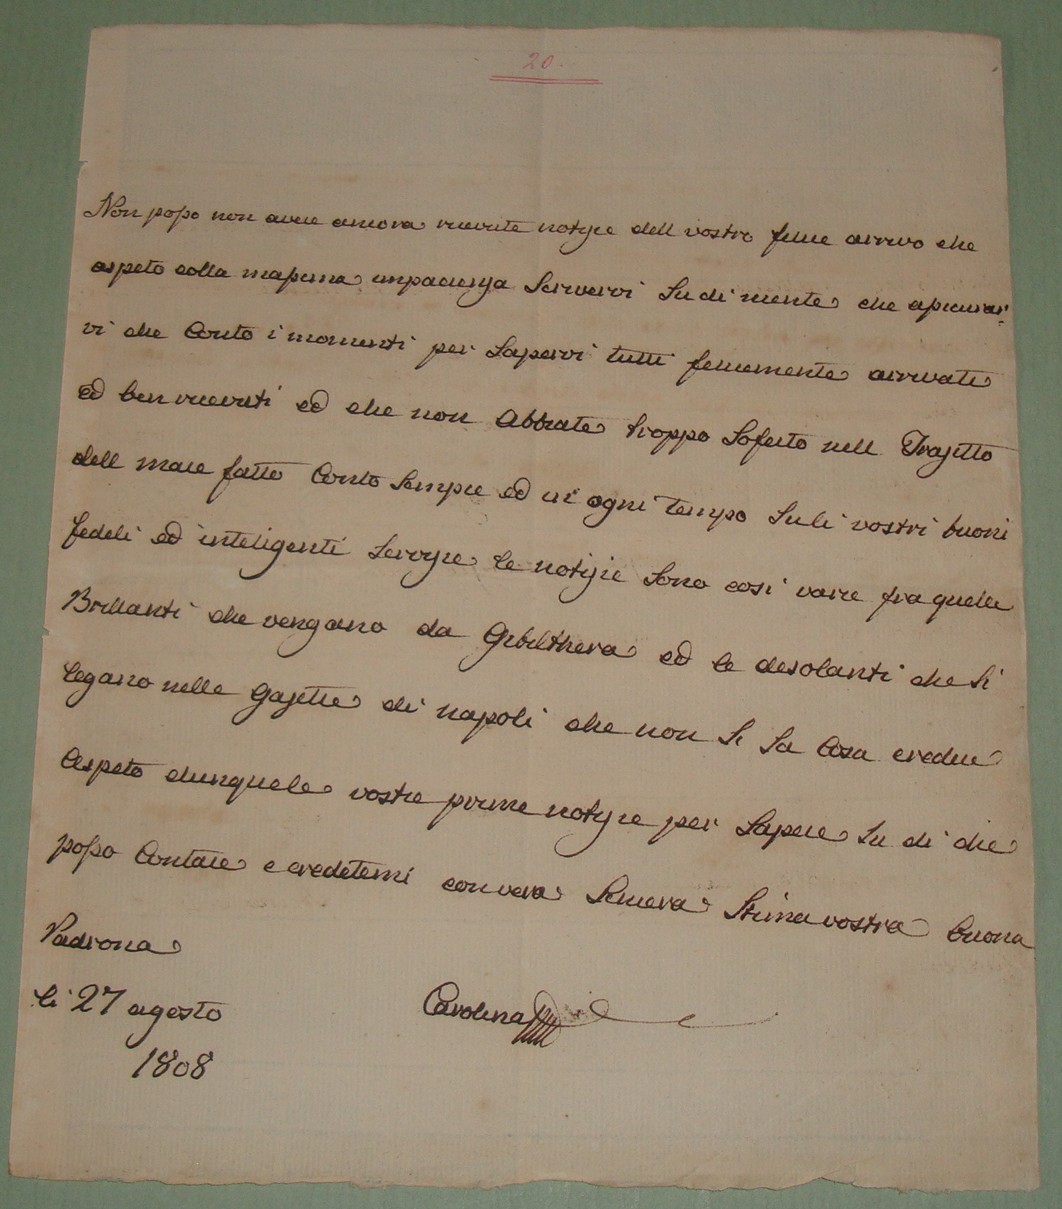 20.
Non posso non avere ancora ricevute notizie dell vostro felice arrivo che
aspeto colla massima impacienza Scrivervi Su di niente che assicurar¬
vi che Conto i momenti per Sapervi tutti felicemente arrivati
ed ben ricevuti ed che non Abbiate troppo Soferto nell Trajetto
dell mare fatte Conto Sempre ed in ogni Tempo Su li vostri buoni
fedeli ed inteligenti Servizie le notizie Sono cosi varie fra quelle
Brillanti che vengano da Gibilthera ed le desolanti che Si
legano nelle Gazette di napoli che non Si Sa Cosa credere
Aspeto dunque le vostre prime notizie per Sapere Su di che
posso Contare e credetemi con vera Sincera Stima vostra buona
Padrona
li 27 agosto
1808
Carolina